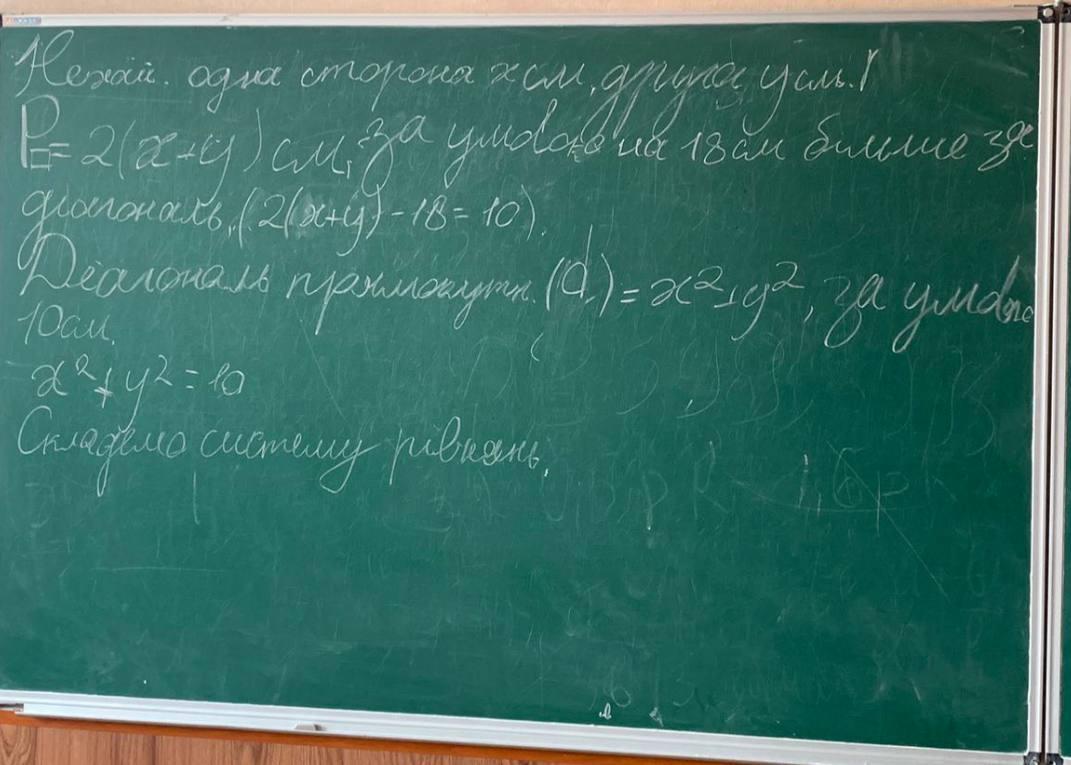 Нехай одна сторона x см, друга y см.
P▭ = 2(x+y) см, за умовою на 18 см більше за
діагональ, (2(x+y) - 18 = 10).
Діагональ прямокутн. (d) = x² + y², за умовою
10 см.
x² + y² = 10
Складемо систему рівнянь.